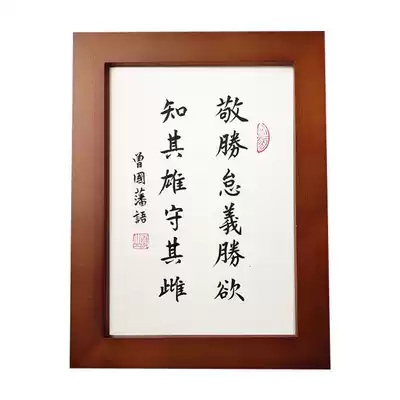 敬勝怠義勝欲
知其雄守其雌
曾國藩語